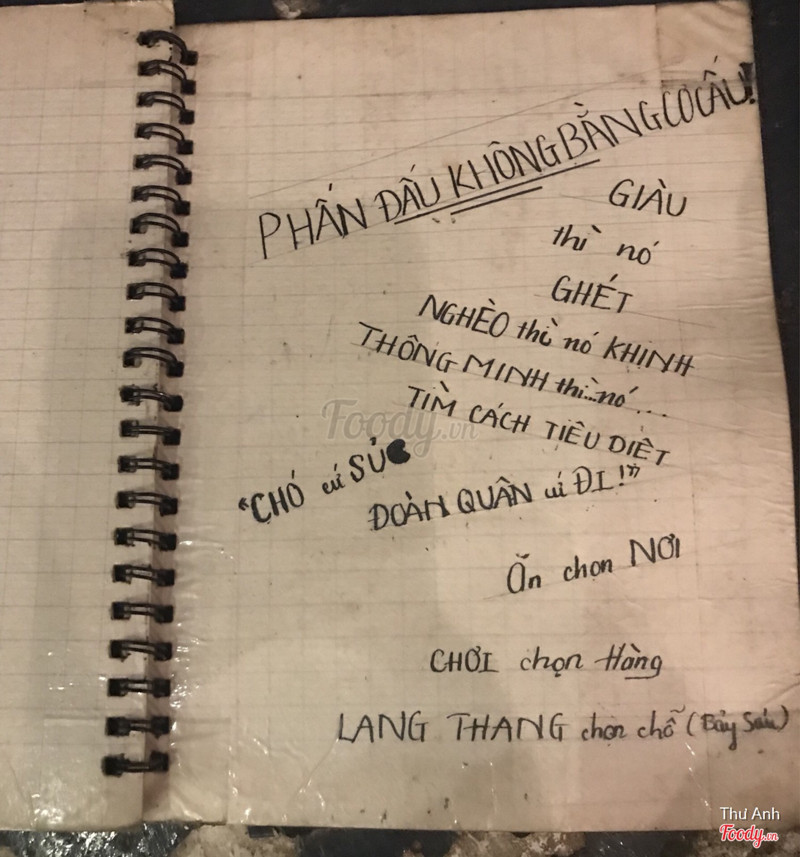 PHẤN ĐẤU KHÔNG BẰNG CƠ CẤU!
GIÀU
thì nó
GHÉT
NGHÈO thì nó KHINH
THÔNG MINH thì...nó...
TÌM CÁCH TIÊU DIỆT
"CHÓ cứ SỦ
ĐOÀN QUÂN cứ ĐI!"
Ăn chọn NƠI
CHƠI chọn Hàng
LANG THANG chọn chỗ (Bảy Sáu)
Foody.vn
Thư Anh
Foody.vn